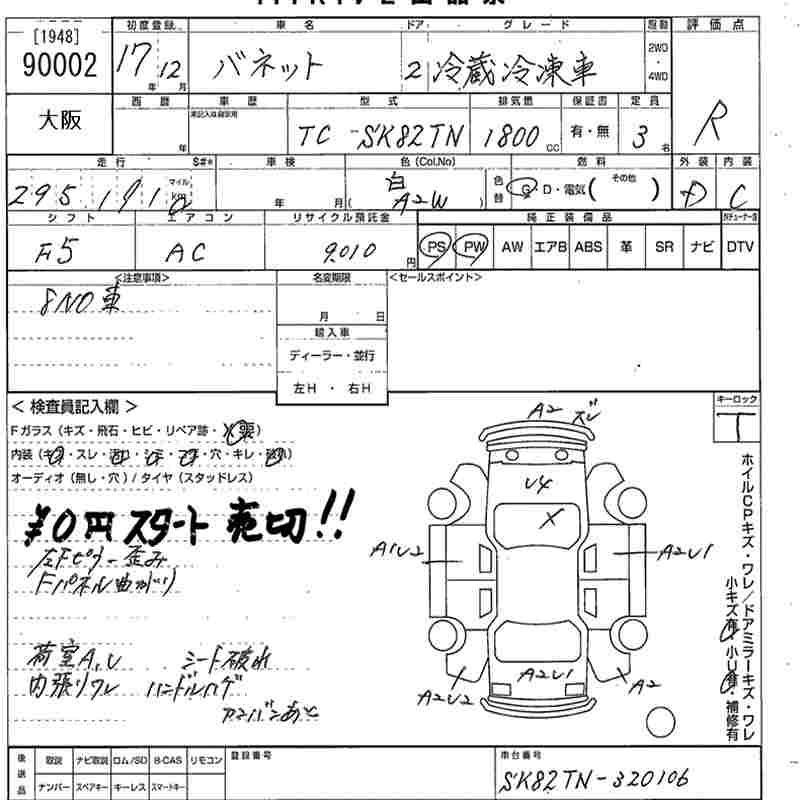 [1948]
90002
大阪
初度登録 車名 ドア グレード 駆動 評価点
17年 12月 バネット 2 冷蔵冷凍車 2WD・4WD R
西暦 車歴 型式 排気量 保証書 定員
年 未記入は自家用 TC-SK82TN 1800cc 有・無 3名
走行 S#* 車検 色(Col.No) 燃料 外装 内装
マイル km 年 月 白 ( A2W ) 色替 G・D・電気( その他 ) D C
シフト エアコン リサイクル預託金 純正装備品
F5 AC 9,010円 PS PW AW エアB ABS 革 SR ナビ DTV
<注意事項> 名変期限 <セールスポイント>
8NO車
月 日
輸入車
ディーラー・並行
左H ・ 右H
<検査員記入欄>
キーロック
T
Fガラス(キズ・飛石・ヒビ・リペア跡・
オーディオ(無し・穴)/タイヤ(スタッドレス)
¥0円スタート売切!!
左Fピラー歪み
Fパネル曲がり
荷室A,U シート破れ
内張りワレ ハンドルハゲ
カンバンあと
A2 スレ
U4
X
A1U2
A2U1
A2U1
A2U2
A2
ホイルCPキズ・ワレ/ドアミラーキズ・ワレ
小キズ有・小U有・補修有
後送品 取説 ナビ取説 ロム/SD B-CAS リモコン 登録番号 車台番号
ナンバー スペアキー キーレス スマートキー SK82TN-320106